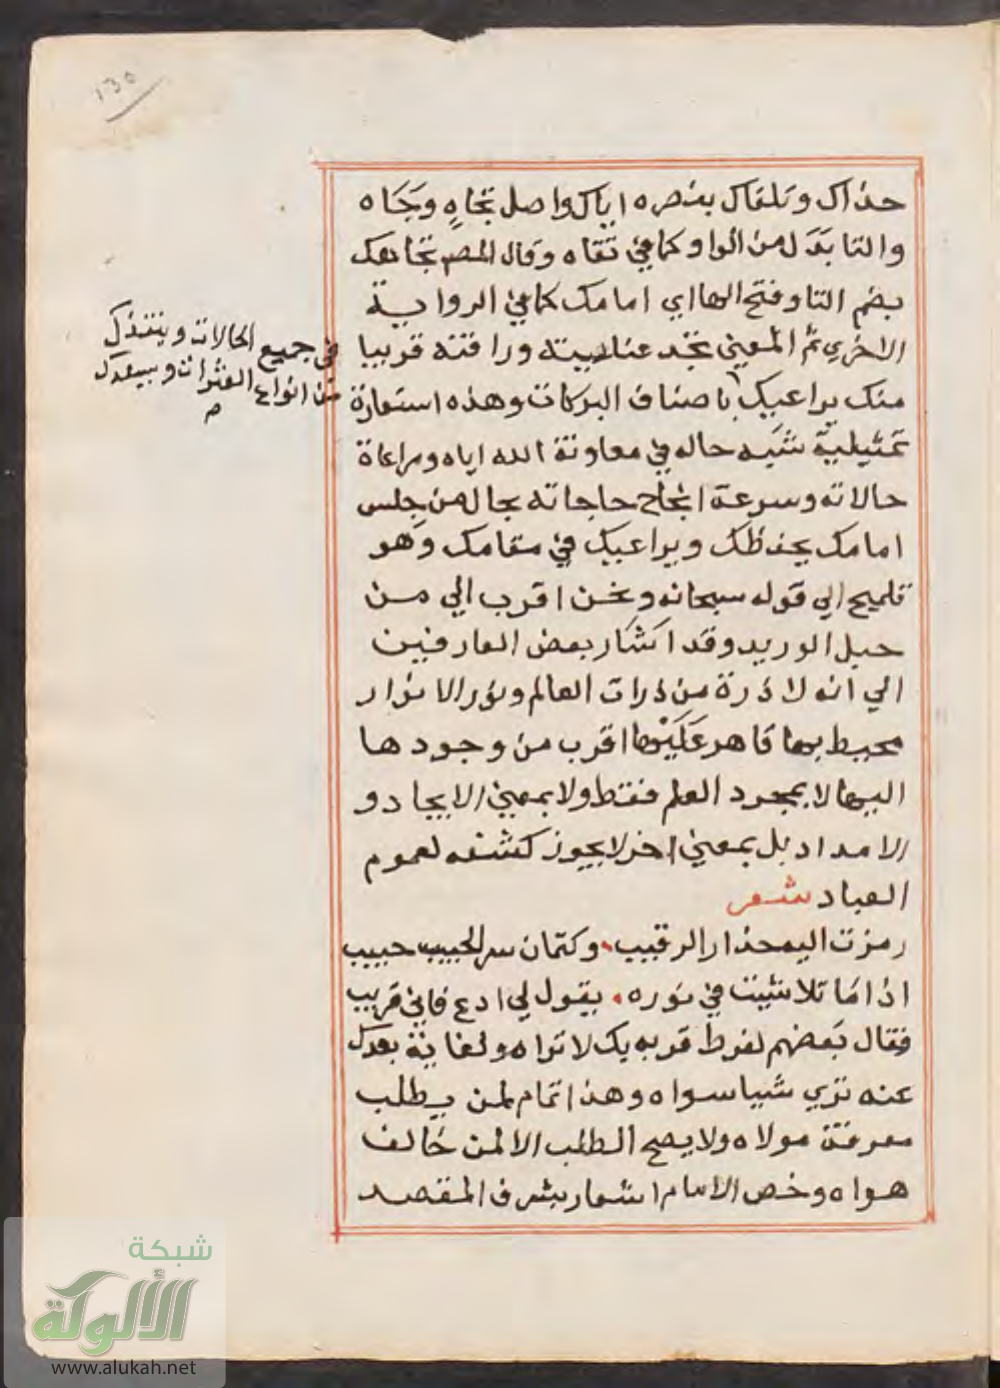 ١٣٥
حذاك وتلقاك بنصره اياك واصل تجاهٍ وجاه
والتا بدل من الواو كما في تقاه وقال المصر تجاهك
بضم التا وفتح الها اي امامك كما في الرواية
الاخري ثم المعني تجد عنايته ورافته قريبا
منك يراعيك باصناف البركات وهذه استعارة
تمثيلية شبه حاله في معاونة الله اياه ومراعاة
حالاته وسرعة انجاح حاجاته بحال من جلس
امامك يحفظك ويراعيك في مقامك وهو
تلميح الي قوله سبحانه ونحن اقرب الي من
حبل الوريد وقد اشار بعض العارفين
الي انه لا ذرة من ذرات العالم ونور الانوار
محيط بها قاهر عليها اقرب من وجودها
اليها لا بمجرد العلم فقط ولا بمعني الايجاد و
الامداد بل بمعني اخر لا يجوز كشفه لعموم
العباد شعر
رمزت اليه حذار الرقيب وكتمان سر الحبيب حبيب
اذا ما تلاشيت في نوره يقول لي ادع فاني قريب
فقال بعضهم لفرط قربه بك لا تراه ولغاية بعدك
عنه تري شيا سواه وهذا تمام لمن يطلب
معرفة مولاه ولا يصح الطلب الا لمن خالف
هواه وخص الامام اشعار بشرف المقصد
في جميع الحالات وينقذك
من انواع العثرات ويسعدك
م
شبكة
الألوكة
www.alukah.net